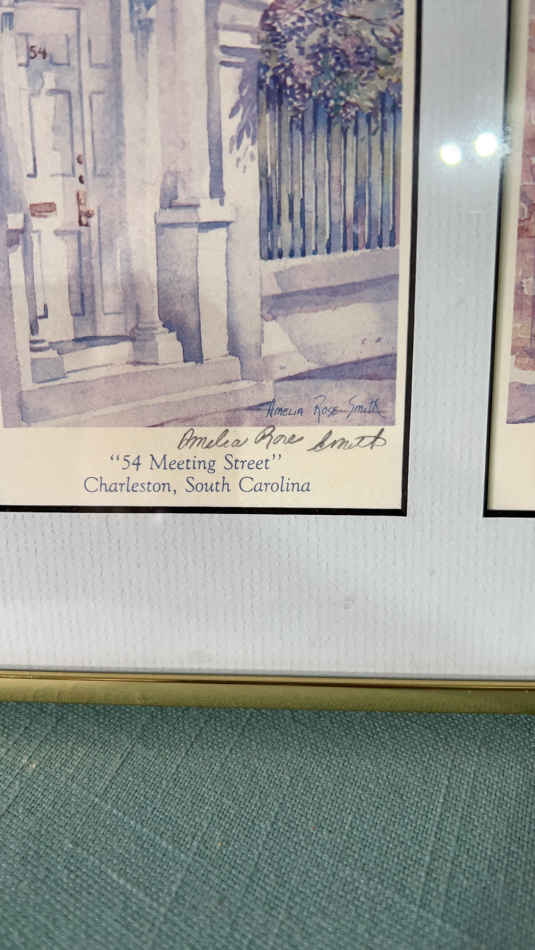 54
AMELIA ROSE SMITH
Amelia Rose Smith
“54 Meeting Street”
Charleston, South Carolina